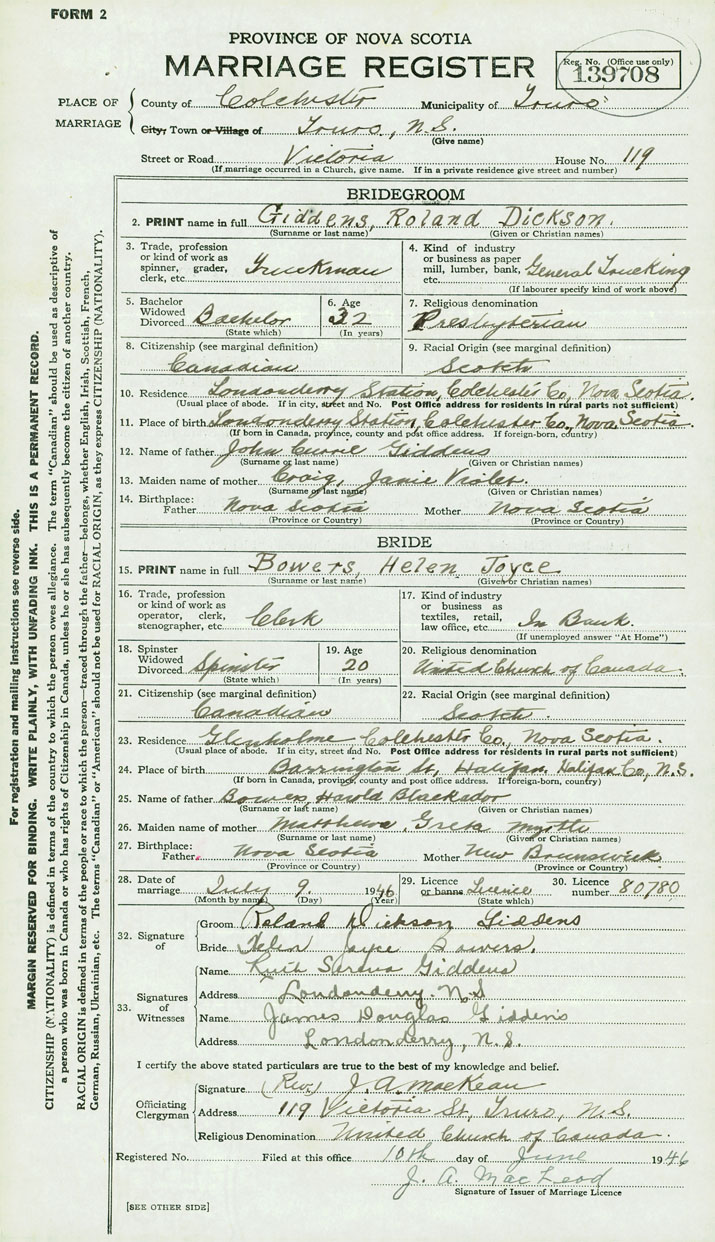 FORM 2
PROVINCE OF NOVA SCOTIA
MARRIAGE REGISTER
Reg. No. (Office use only)
139708
PLACE OF MARRIAGE
County of Colchester Municipality of Truro
City, Town or Village of Truro, N.S.
(Give name)
Street or Road Victoria House No. 119
(If marriage occurred in a Church, give name. If in a private residence give street and number)
BRIDEGROOM
2. PRINT name in full Giddens, Roland Dickson.
(Surname or last name) (Given or Christian names)
3. Trade, profession or kind of work as spinner, grader, clerk, etc. Truckman
4. Kind of industry or business as paper mill, lumber, bank, etc. General Trucking
(If labourer specify kind of work above)
5. Bachelor Widowed Divorced Bachelor
(State which)
6. Age 32
(In years)
7. Religious denomination
Presbyterian
8. Citizenship (see marginal definition)
Canadian
9. Racial Origin (see marginal definition)
Scotch
10. Residence Londonderry Station, Colchester Co, Nova Scotia.
(Usual place of abode. If in city, street and No. Post Office address for residents in rural parts not sufficient)
11. Place of birth Londonderry Station, Colchester Co, Nova Scotia.
(If born in Canada, province, county and post office address. If foreign-born, country)
12. Name of father John Currie Giddens
(Surname or last name) (Given or Christian names)
13. Maiden name of mother Craig, Janie Violet.
(Surname or last name) (Given or Christian names)
14. Birthplace: Father Nova Scotia Mother Nova Scotia
(Province or Country) (Province or Country)
BRIDE
15. PRINT name in full Bowers, Helen Joyce
(Surname or last name) (Given or Christian names)
16. Trade, profession or kind of work as operator, clerk, stenographer, etc. Clerk
17. Kind of industry or business as textiles, retail, law office, etc. In Bank.
(If unemployed answer "At Home")
18. Spinster Widowed Divorced Spinster
(State which)
19. Age 20
(In years)
20. Religious denomination
United Church of Canada.
21. Citizenship (see marginal definition)
Canadian
22. Racial Origin (see marginal definition)
Scotch.
23. Residence Glenholme Colchester Co, Nova Scotia.
(Usual place of abode. If in city, street and No. Post Office address for residents in rural parts not sufficient)
24. Place of birth Barrington St, Halifax, Halifax Co, N.S.
(If born in Canada, province, county and post office address. If foreign-born, country)
25. Name of father Bowers, Blackader
(Surname or last name) (Given or Christian names)
26. Maiden name of mother Matthews, Greta Myrtle
(Surname or last name) (Given or Christian names)
27. Birthplace: Father Nova Scotia Mother New Brunswick
(Province or Country) (Province or Country)
28. Date of marriage July 9. 1946
(Month by name) (Day) (Year)
29. Licence or banns Licence
(State which)
30. Licence number 80780
32. Signature of
Groom Roland Dickson Giddens
Bride Helen Joyce Bowers.
33. Signatures of Witnesses
Name Ruth Serena Giddens
Address Londonderry. N.S
Name James Douglas Giddens
Address Londonderry, N.S.
I certify the above stated particulars are true to the best of my knowledge and belief.
Officiating Clergyman
Signature (Rev.) J. A. MacKean
Address 119 Victoria St, Truro, N.S.
Religious Denomination United Church of Canada.
Registered No. Filed at this office 10th day of June 1946
J. A. MacLeod
Signature of Issuer of Marriage Licence
[SEE OTHER SIDE]
For registration and mailing instructions see reverse side.
MARGIN RESERVED FOR BINDING. WRITE PLAINLY, WITH UNFADING INK. THIS IS A PERMANENT RECORD.
CITIZENSHIP (NATIONALITY) is defined in terms of the country to which the person owes allegiance. The term "Canadian" should be used as descriptive of
a person who was born in Canada or who has rights of Citizenship in Canada, unless he or she has subsequently become the citizen of another country.
RACIAL ORIGIN is defined in terms of the people or race to which the person—traced through the father—belongs, whether English, Irish, Scottish, French,
German, Russian, Ukrainian, etc. The terms "Canadian" or "American" should not be used for RACIAL ORIGIN, as they express CITIZENSHIP (NATIONALITY).